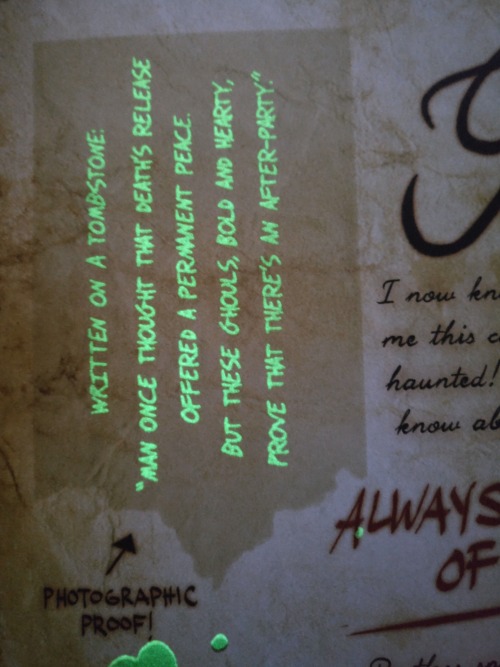 WRITTEN ON A TOMBSTONE:
"MAN ONCE THOUGHT THAT DEATH'S RELEASE
OFFERED A PERMANENT PEACE.
BUT THESE GHOULS, BOLD AND HEARTY,
PROVE THAT THERE'S AN AFTER-PARTY."
PHOTOGRAPHIC
PROOF!
I now
me this
haunted!
know
ALWAYS
OF